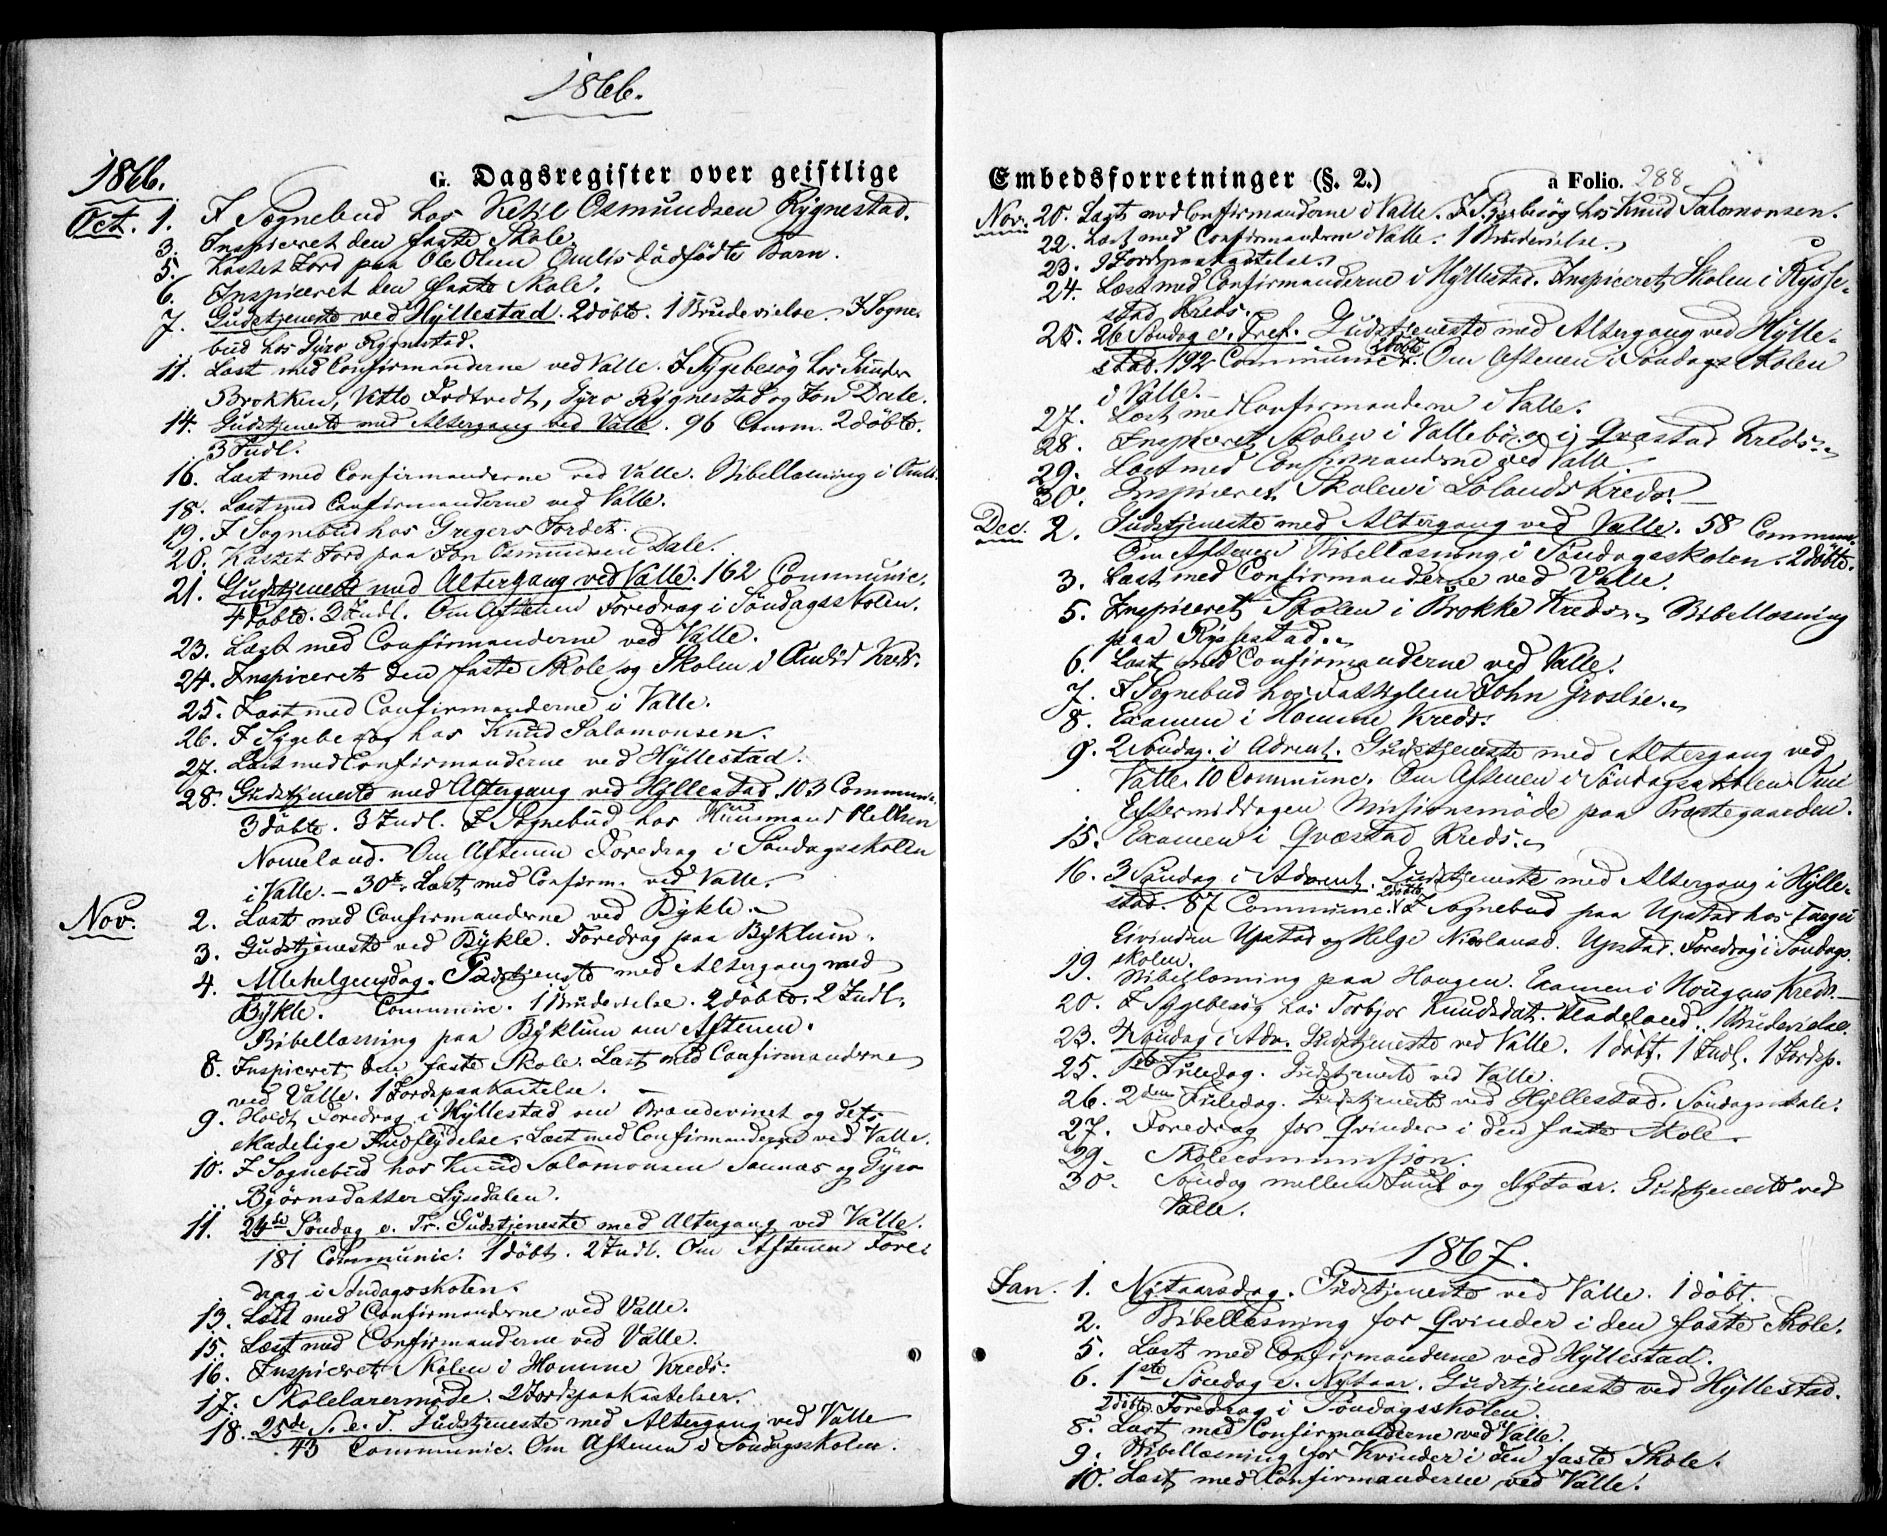 1866.
1866.
G. Dagsregister over geistlige
Oct. 1. I Sognebud hos Ketil Osmundsen Rygnestad.
3. Inspiceret den faste Skole.
5. Kastet Jord paa Ole Olsen Omlis dødfødte Barn.
6. Inspiceret den faste Skole.
7. Gudstjeneste ved Hyllestad. 2 døbte. 1 Brudevielse. I Sogne-
bud hos Gyro Rygnestad.
11. Læst med Confirmanderne ved Valle. I Sygebesøg hos Gunder
Brokken, Gyro Rygnestad og Jon Dale.
14. Gudstjeneste med Altergang ved Valle. 96 Comm. 2 døbte.
3 Indl.
16. Læst med Confirmanderne ved Valle. Bibellæsning i Omlid.
18. Læst med Confirmanderne ved Valle.
19. I Sognebud hos Gregers Jordet.
20. Kastet Jord paa Jon Osmundsen Dale.
21. Gudstjeneste med Altergang ved Valle. 162 Communic.
4 døbte. 3 Indl. Om Aftenen Foredrag i Søndagsskolen.
23. Læst med Confirmanderne ved Valle.
24. Inspiceret den faste Skole og Skolen i Omlid Kreds.
25. Læst med Confirmanderne i Valle.
26. I Sygebesøg hos Knud Salomonsen.
27. Læst med Confirmanderne ved Hyllestad.
28. Gudstjeneste med Altergang ved Hyllestad. 103 Commun.
3 døbte. 3 Indl. I Sognebud hos Huusmand
Nomeland. Om Aftenen Foredrag i Søndagsskolen
i Valle. – 30te. Læst med Confirm. ved Valle.
Nov. 2. Læst med Confirmanderne ved Bykle.
3. Gudstjeneste ved Bykle. Foredrag paa Byklum.
4. Allehelgensdag. Gudstjeneste med Altergang ved
Bykle. Commune. 1 Brudevielse. 2 døbte. 2 Indl.
Bibellæsning paa Byklum om Aftenen.
8. Inspiceret den faste Skole. Læst med Confirmanderne
ved Valle. 1 Jordpaakastelse.
9. Holdt Foredrag i Hyllestad om Brændeviinet og dets
skadelige Indflydelse. Læst med Confirmanderne ved Valle.
10. I Sognebud hos Knud Salomonsen og Gyro
Bjørnsdatter Lysedalen.
11. 24de Søndag e. Tr. Gudstjeneste med Altergang ved Valle.
181 Communic. 1 døbt. 2 Indl. Om Aftenen Fore-
drag i Søndagsskolen.
13. Læst med Confirmanderne ved Valle.
15. Læst med Confirmanderne ved Valle.
16. Inspiceret Skolen i Homme Kreds.
17. Skolelærermøde. 2 Jordpaakastelser.
18. 25de S. e. T. Gudstjeneste med Altergang ved Valle
43 Communic. Om Aftenen i Søndagsskolen.
Embedsforretninger (§. 2.) a Folio. 288
Nov. 20. Læst med Confirmanderne i Valle. I Sygebesøg hos Knud Salomonsen.
22. Læst med Confirmanderne i Valle. 1 Brudevielse.
23. Jordpaakastelse.
24. Læst med Confirmanderne i Hyllestad. Inspiceret Skolen i Rysse-
stad Kreds.
25. 26 Søndag e. Tref. Gudstjeneste med Altergang ved Hylle-
stad. 192 Communic. 2 døbte. Om Aftenen i Søndagsskolen
i Valle.
27. Læst med Confirmanderne i Valle.
28. Inspiceret Skolen i Vallebø og i Qvæstad Kreds.
29. Læst med Confirmanderne ved Valle.
30. Inspiceret Skolen i Løland's Kreds.
Dec. 2. Gudstjeneste med Altergang ved Valle. 58 Commun.
Om Aftenen Bibellæsning i Søndagsskolen. 2 døbte.
3. Læst med Confirmanderne ved Valle.
5. Inspiceret Skolen i Brokke Kreds. Bibellæsning
paa Ryssestad.
6. Læst med Confirmanderne ved Valle.
7. I Sognebud hos John Groslie.
8. Examen i Homme Kreds.
9. 2 Søndag i Advent. Gudstjeneste med Altergang ved
Valle. 10 Commune. Om Aftenen i Søndagsskolen. Om
Eftermiddagen Missionsmøde paa Præstegaarden.
15. Examen i Qvæstad Kreds.
16. 3 Søndag i Advent. Gudstjeneste med Altergang i Hylle-
stad. 87 Commune. 2 døbte. I Sognebud paa Upstad hos
Eivindsen Upstad og Helge Nicolausd. Upstad. Foredrag i Søndags-
skolen.
19. Bibellæsning paa Haugen. Examen i Hougens Kreds.
20. I Sygebesøg hos Torbjor Knudsdat. Fladeland. 1 Brudevielse.
23. 4 Søndag i Adv. Gudstjeneste ved Valle. 1 døbt. 1 Indl. 1 Jordsp.
25. 1ste Juledag. Gudstjeneste ved Valle.
26. 2den Juledag. Gudstjeneste ved Hyllestad. Søndagsskole.
27. Foredrag for Qvinder i den faste Skole.
29. Skolecommission.
30. Søndag mellem Juul og Nytaar. Gudstjeneste ved
Valle.
1867.
Jan. 1. Nytaarsdag. Gudstjeneste ved Valle. 1 døbt.
2. Bibellæsning for Qvinder i den faste Skole.
5. Læst med Confirmanderne ved Hyllestad.
6. 1ste Søndag e. Nytaar. Gudstjeneste ved Hyllestad.
2 døbte. Foredrag i Søndagsskolen.
8. Læst med Confirmanderne ved Valle.
9. Bibellæsning for Kvinder i den faste Skole.
10. Læst med Confirmanderne ved Valle.